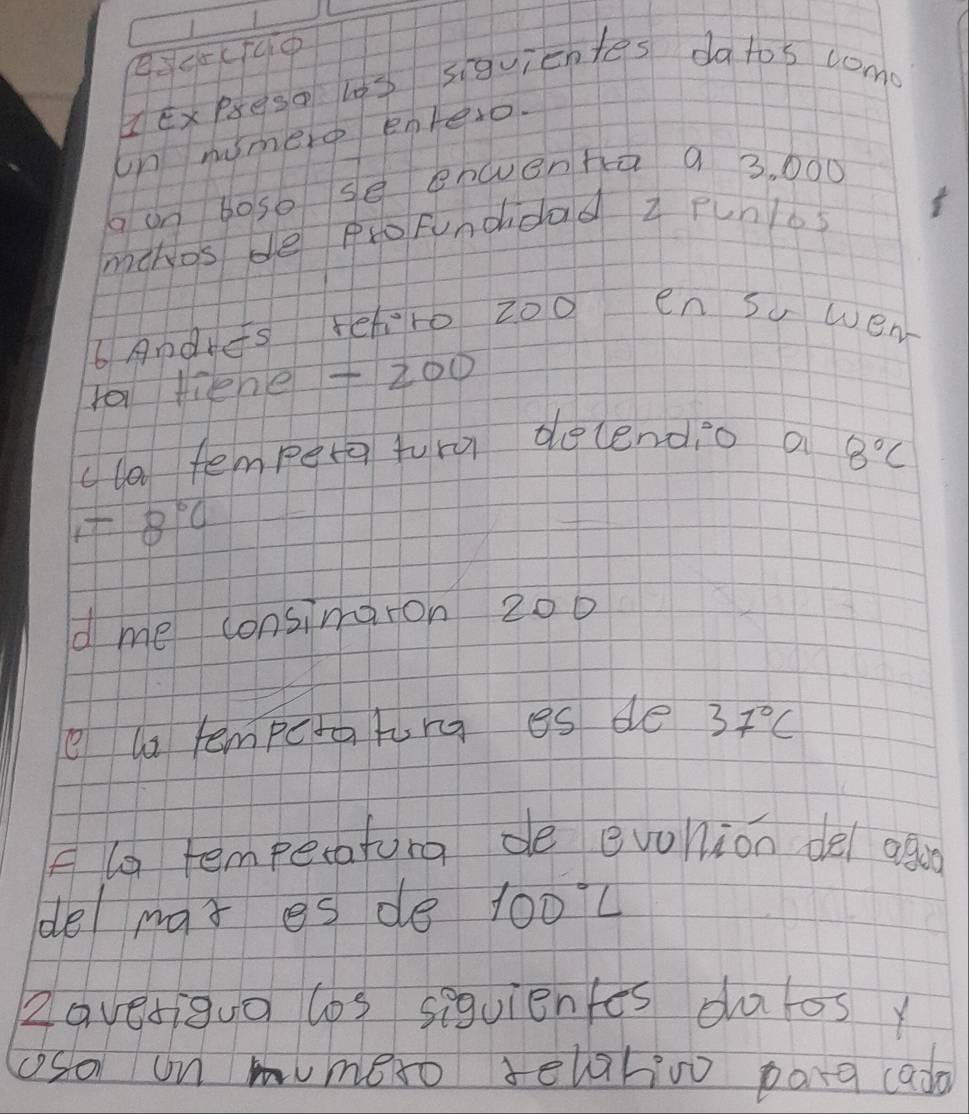 esercicio
1 Expresa los siguientes datos como
un número entero.
a un boso se encuentra a 3.000
metros de profundidad 2 puntos
b Andrés retiro 200 en su cuen
ta tiene - 200
c la temperatura decendio a 8°C
- 8°C
d me consinaron 200
e la temperatura es de 37°C
F la temperatura de evonión del agua
del mar es de 100°C
2 averigua los siguientes datos y
usa un numero relativo para cada